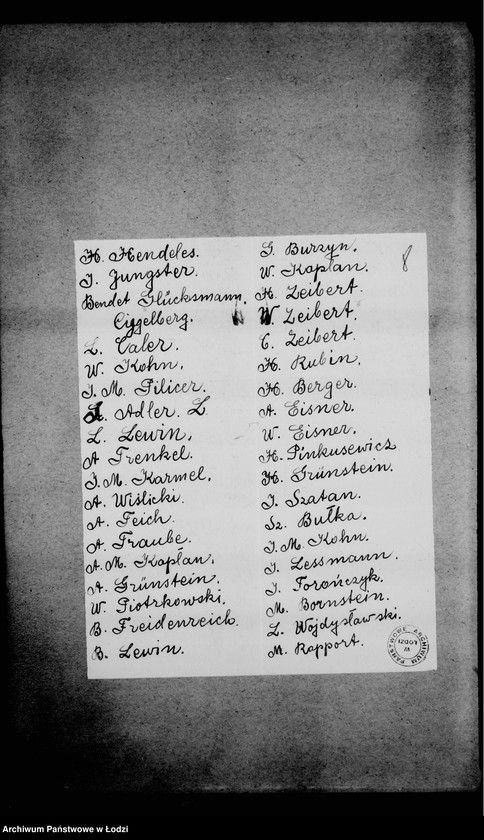 H. Hendeles.
J. Jungster.
Bendet Glücksmann.
Cygelberg.
L. Caler.
W. Kohn.
J. M. Pilicer.
Adler. L
L. Lewin.
A Frenkel.
J. M. Karmel.
A. Wiślicki.
A. Feich.
A. Traube.
A. M. Kapłan.
A. Grünstein.
W. Piotrkowski.
B. Freidenreich.
B. Lewin.
G. Burzyn.
W. Kapłan.
H. Zeibert.
W. Zeibert.
C. Zeibert.
H. Rubin.
H. Berger.
A. Eisner.
W. Eisner.
H. Pinkusewicz
H. Grünstein.
J. Szatan.
Sz. Bułka.
J. M. Kohn.
J. Lessmann.
J. Torończyk.
M. Bornstein.
L. Wojdysławski.
M. Rapport.
8
ARCHIWUM PAŃSTWOWE
W
ŁODZI
Archiwum Państwowe w Łodzi